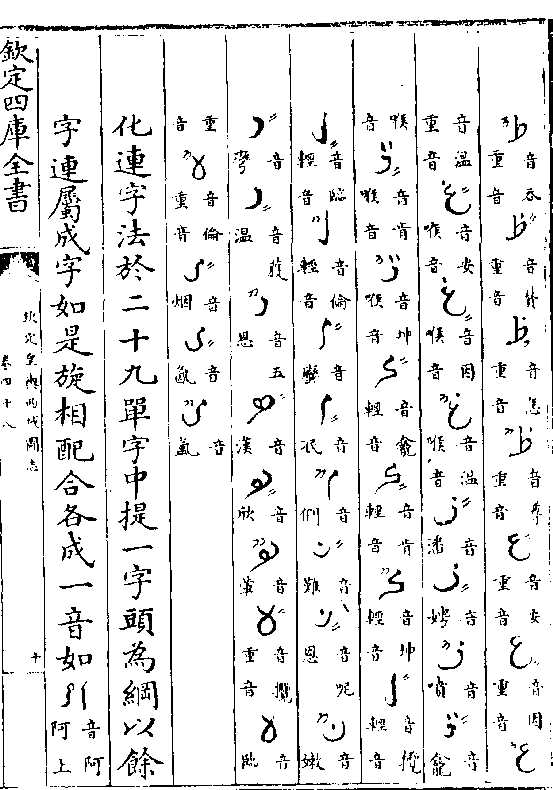 طً 音吞重音 طٍ 重音 طٍ 音怎重音 طٌ 音尊重音 عً 音安重音 عٍ 音因重音 عٌ
音溫重音 غً 音安喉音 غٍ 音因喉音 غٌ 音溫喉音 فً 音潘 فٍ 音娉 فٌ 音噴 قً 音龕
喉音 قٍ 音肯喉音 قٌ 音坤喉音 كً 音龕輕音 كٍ 音肯輕音 كٌ 音坤輕音 لً 音攬輕音
لٍ 音臨輕音 لٌ 音倫輕音 مً 音蠻 مٍ 音泯 مٌ 音們 نً 音難 نٍ 音呢恩 نٌ 音嫩
وً 音彎 وٍ 音腹溫 وٌ 音五恩 هً 音漢 هٍ 音欣 هٌ 音葷 لاً 音攬重音 لاٍ 音臨
重音 لاٌ 音倫重音 يً 音烟 يٍ 音氤 يٌ 音氲
化連字法於二十九單字中提一字頭為綱以餘
字連屬成字如是旋相配合各成一音如 اا 音阿阿上
欽定四庫全書
欽定皇輿西域圖志
卷四十八
十